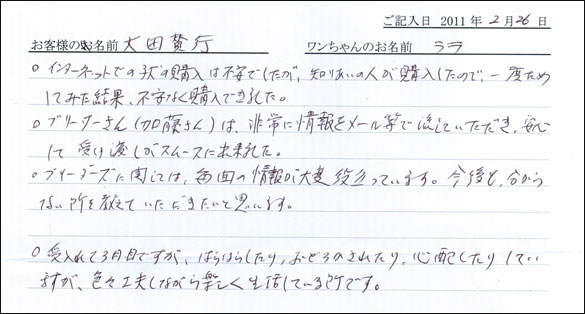 ご記入日 2011年 2月 26日
お客様のお名前 太田賛行 ワンちゃんのお名前 ララ
○ インターネットでの子犬の購入は不安でしたが、知りあいの人が購入したので、一度ため
してみた結果、不安なく購入できました。
○ ブリーダーさん(加藤さん)は、非常に情報をメール等で流していただき、安心
して受け渡しがスムースに出来ました。
○ ブリーダーズに関しては、毎回の情報が大変役立っています。今後も、分から
ない所を教えていただきたいと思います。
○ 受入れて3日目ですが、はらはらしたり、おどろかされたり、心配したりしてい
ますが、色々工夫しながら楽しく生活している所です。